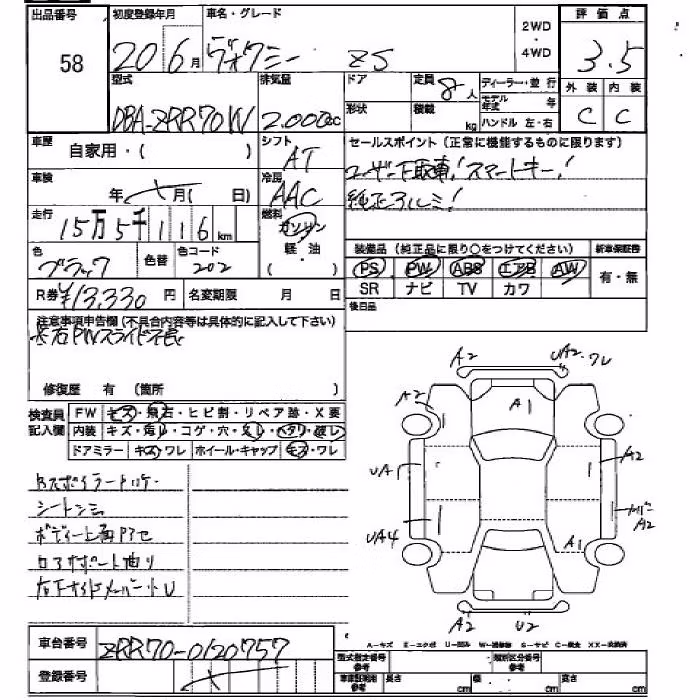 出品番号 初度登録年月 車名・グレード 2WD・4WD 評価点
58 20 6月 ヴォクシー ZS 3.5
型式 排気量 ドア 定員 8人 ディーラー・並行 外装 内装
DBA-ZRR70W 2.000cc 形状 積載 kg モデル年式 年 C C
ハンドル 左・右
車歴 自家用・( ) シフト AT セールスポイント(正常に機能するものに限ります)
ユーザー下取車!スマートキー!
車検 年 月( 日) 冷房 AAC 純正アルミ!
走行 15万5千116km 燃料 ガソリン 軽・油 ( )
装備品(純正品に限り○をつけてください) 新車保証書
色 ブラック 色替 色コード 202 PS PW ABS エアB AW 有・無
R券 ¥13,330円 名変期限 月 日 SR ナビ TV カワ
注意事項申告欄(不具合内容等は具体的に記入して下さい) 後日品
左右PWスライド不良
修復歴 有 (箇所 )
検査員記入欄 FW キズ・飛石・ヒビ割・リペア跡・X要
内装 キズ・汚レ・コゲ・穴・スレ・ヘタリ・破レ
ドアミラー キズ・ワレ ホイール・キャップ キズ・ワレ
シートシミ
A2 UA2 ワレ
A2 A1
UA A2
A2
UA4 A1
A2 U2
車台番号 ZRR70-0120757
登録番号
A-キズ E-エクボ U-凹ミ W-補修跡 S-サビ C-腐食 XX-交換済
型式指定番号参考 類別区分番号参考
車庫証明用参考 長さ cm 幅 cm 高さ cm